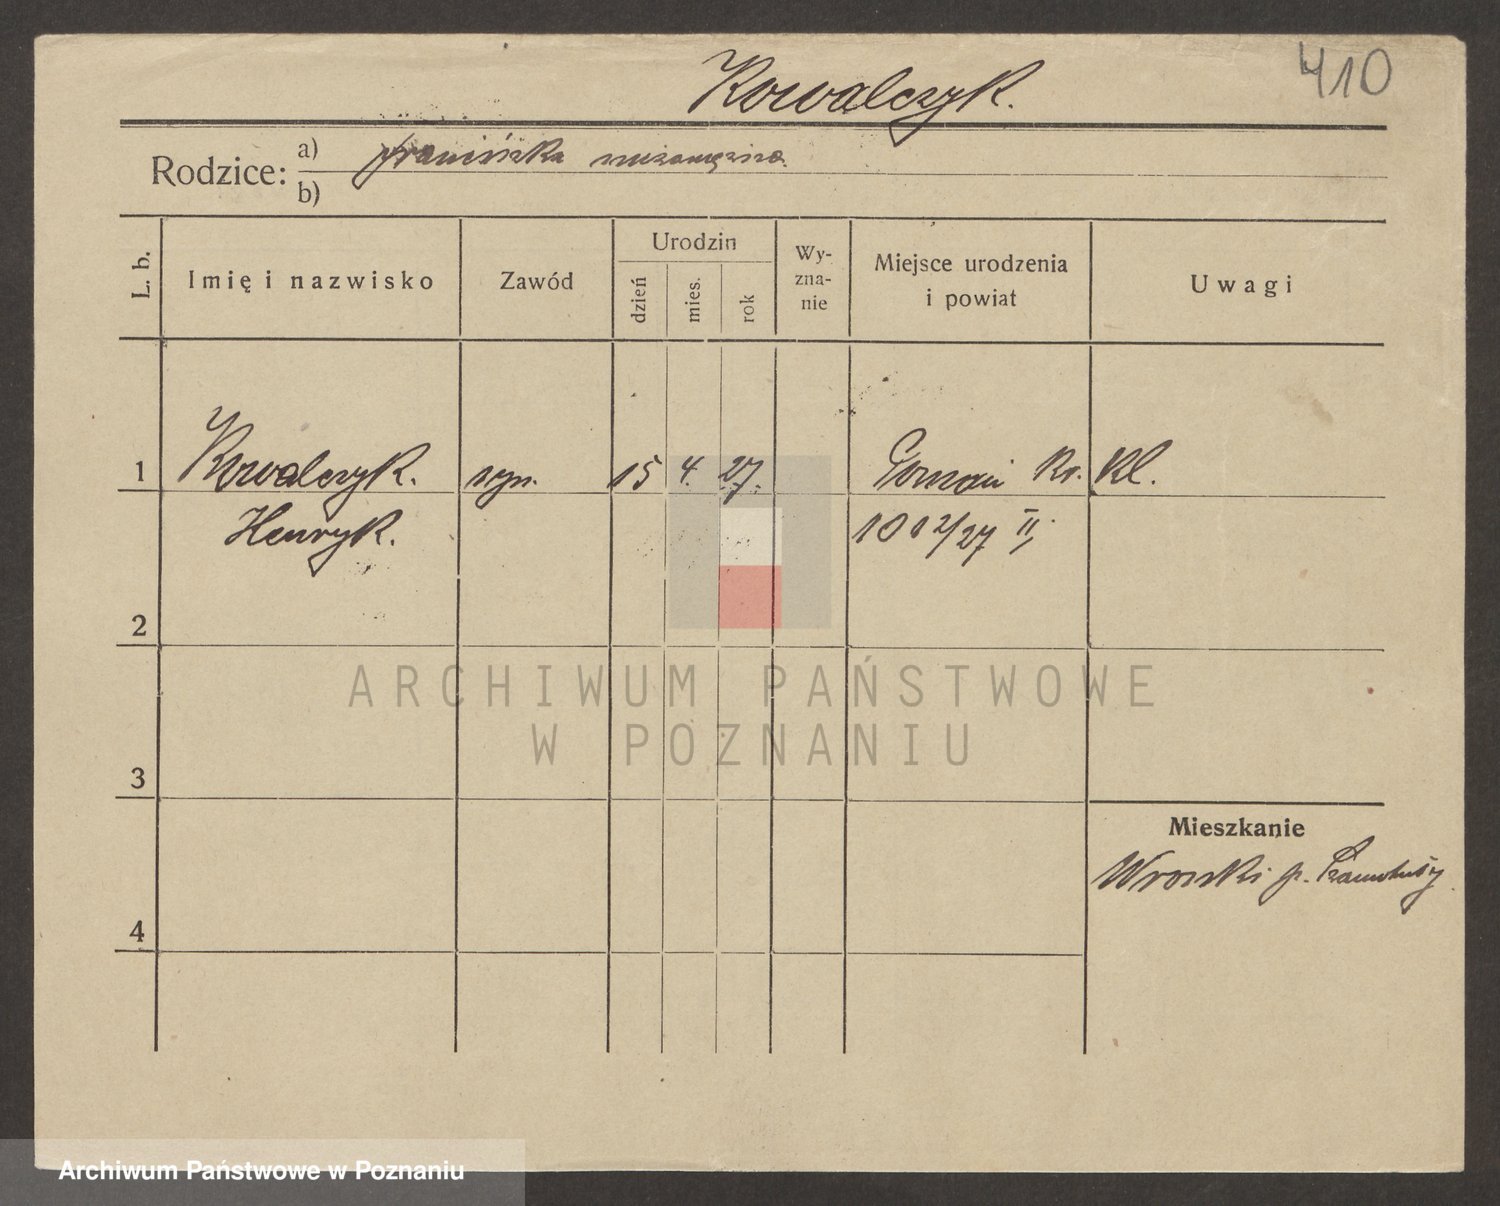 410
Kowalczyk.
Rodzice: a) Franciszka niezamężna
b)
L. b.
Imię i nazwisko
Zawód
Urodzin
dzień
mies.
rok
Wy-
zna-
nie
Miejsce urodzenia
i powiat
Uwagi
1 Kowalczyk. syn. 15 4. 27. Poznań Kr. Kl.
Henryk. 1012/27 II,
2
3
4
Mieszkanie
Wronki p. Szamotuły
ARCHIWUM PAŃSTWOWE
W POZNANIU
Archiwum Państwowe w Poznaniu